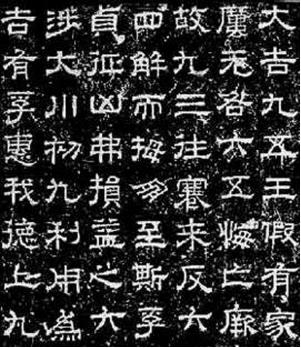 大吉九五王假有家
厲无咎六五悔亡厥
故九三往蹇來反六
四解而拇朋至斯孚
貞征凶弗損益之六
涉大川初九利用為
吉有孚惠我德上九